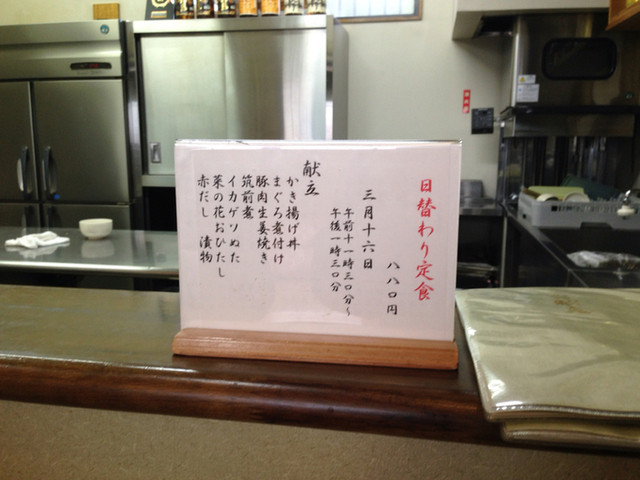 日替わり定食
八八〇円
三月十六日
午前十一時三〇分〜
午後一時三〇分
献立
かき揚げ丼
まぐろ煮付け
豚肉生姜焼き
筑前煮
イカゲソぬた
菜の花おひたし
赤だし 漬物